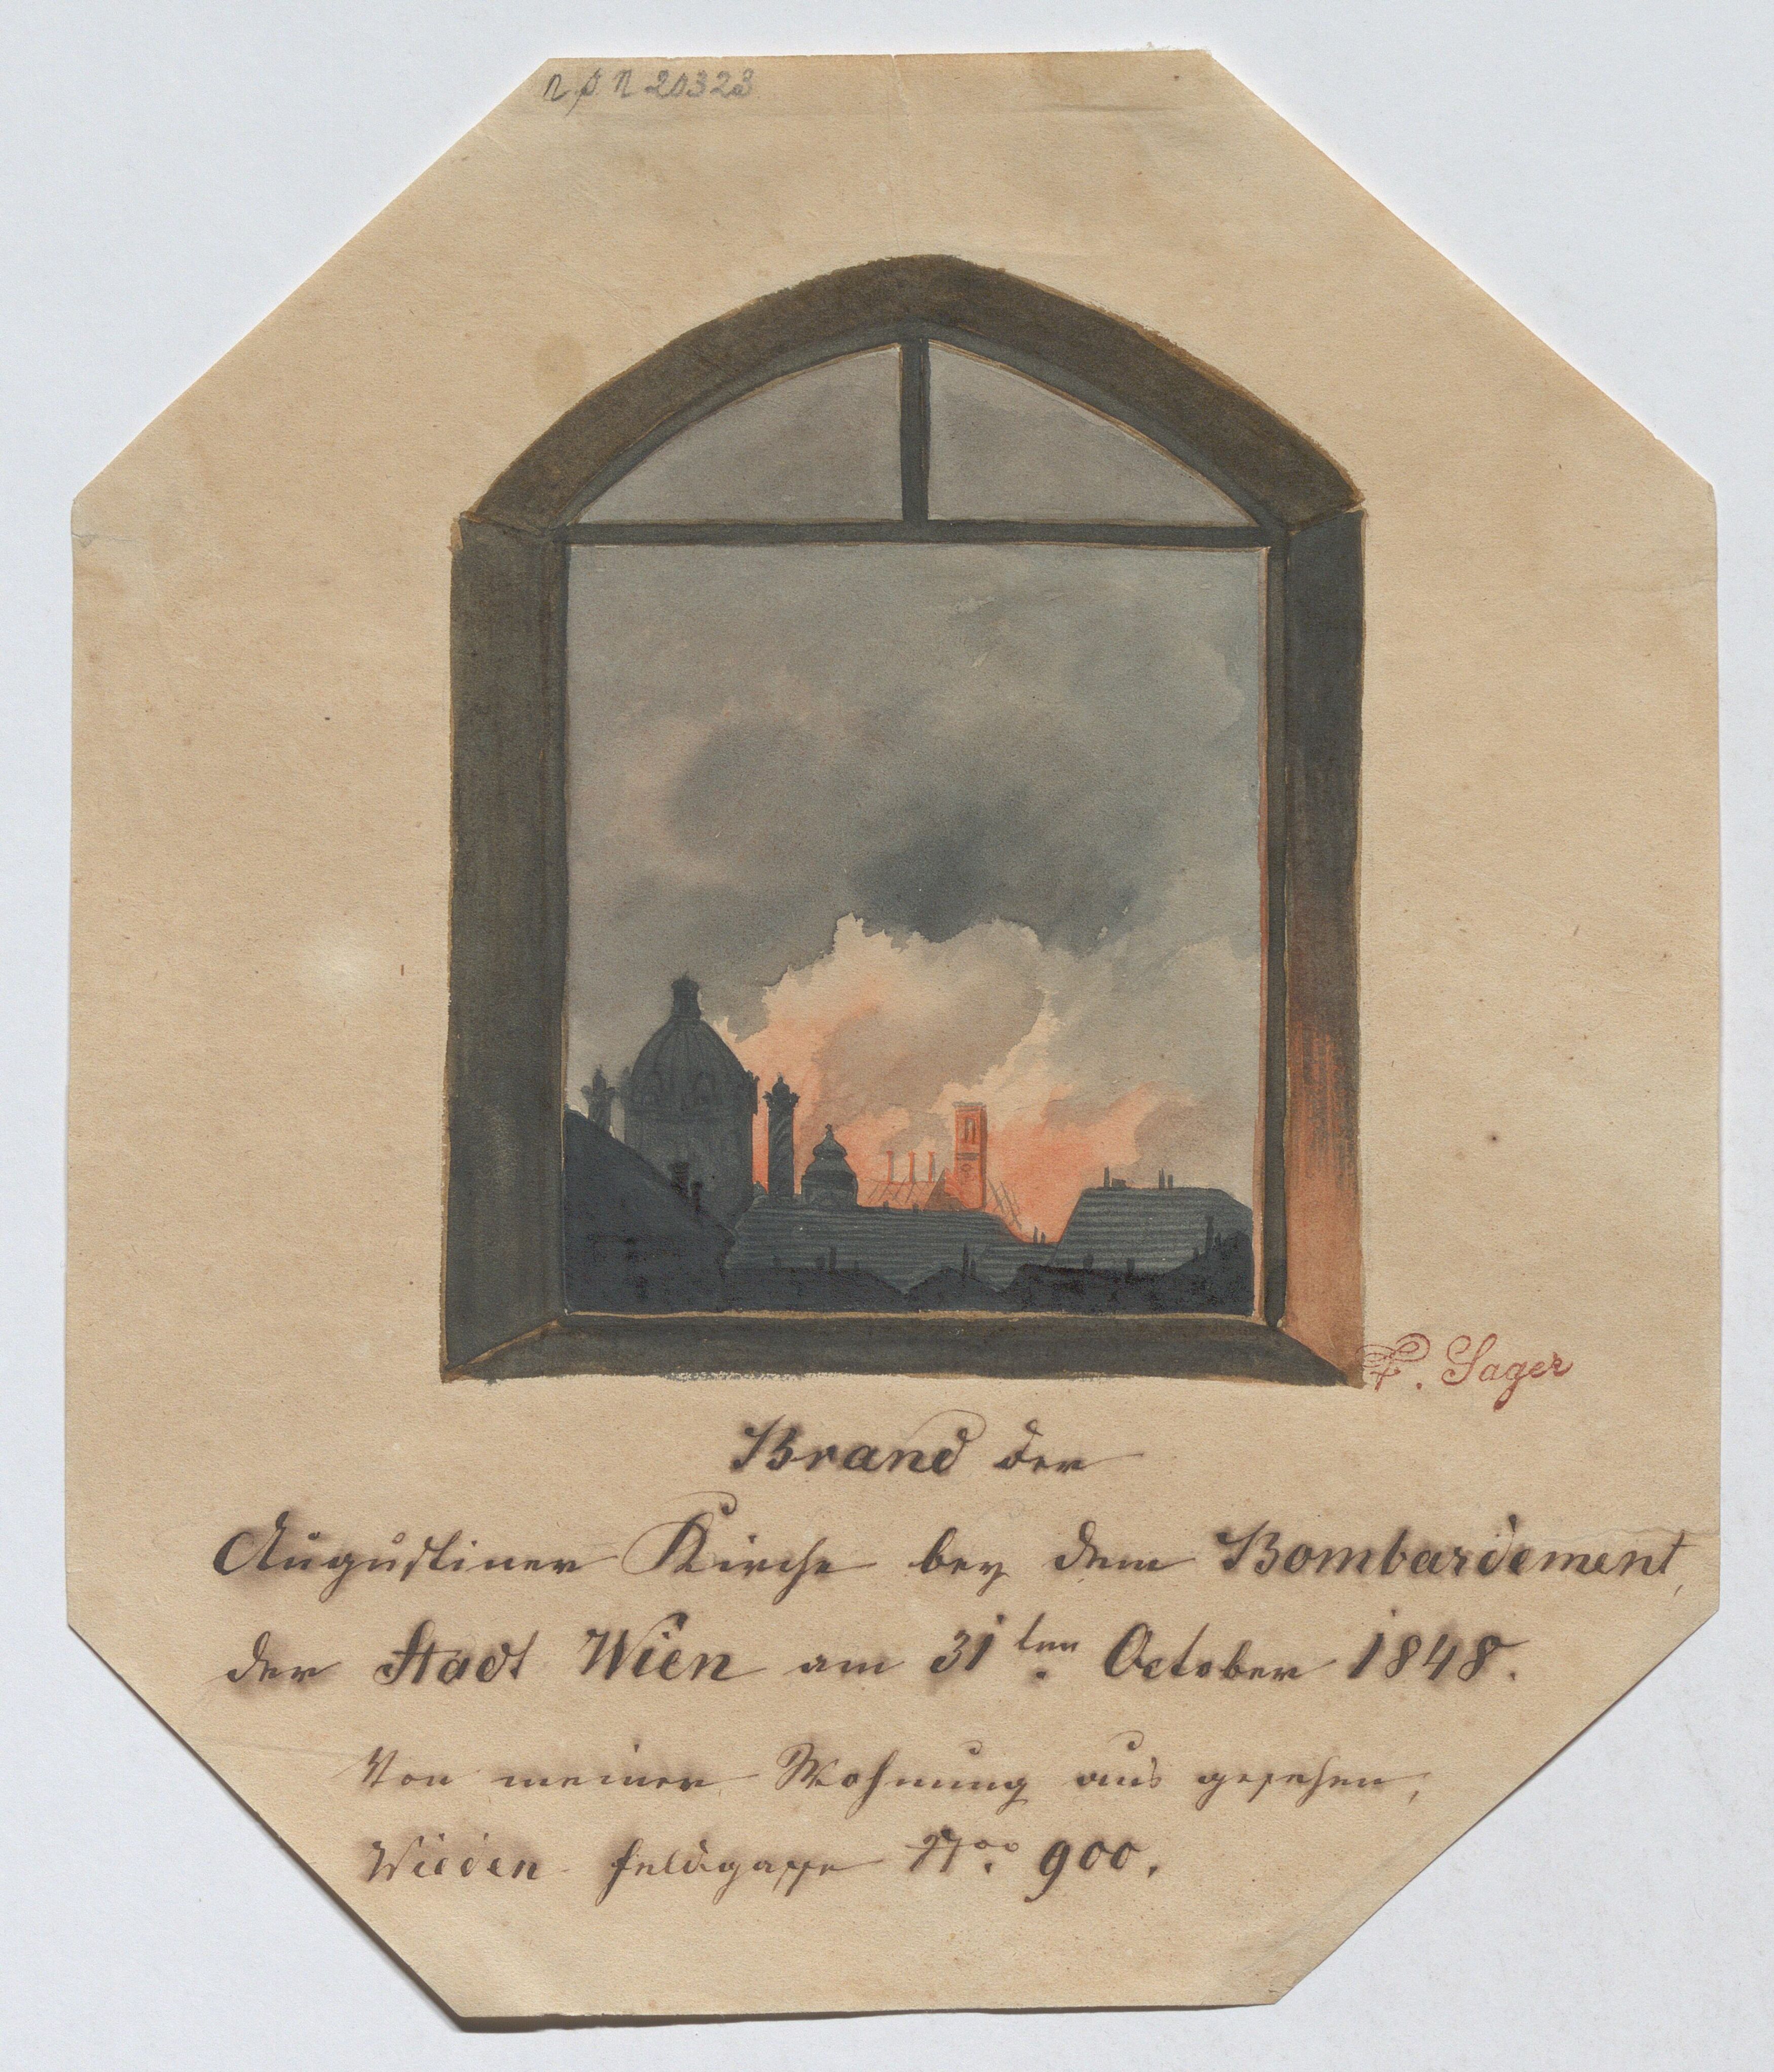 n. p. n 20323
F. Sager
Brand der
Augustiner Kirche bey dem Bombardement,
der Stadt Wien am 31ten. October 1848.
Von meiner Wohnung aus gesehen,
Wieden Feldgasse Nro. 900.